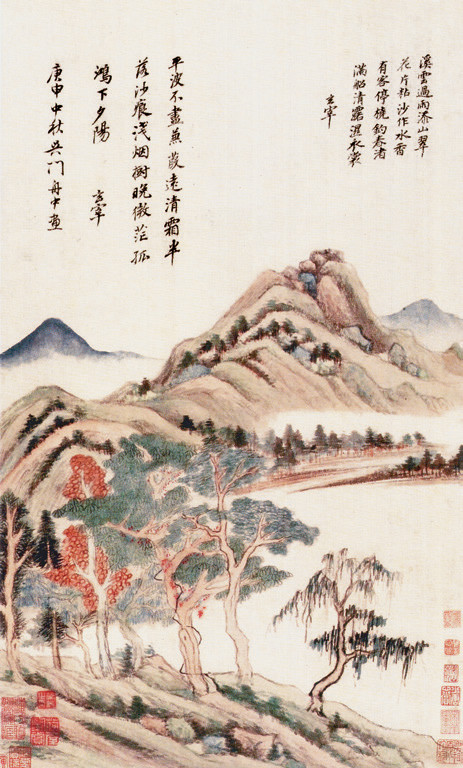 溪雲過雨添山翠
花片粘沙作水香
有客停橈釣春渚
滿船清露濕衣裳
玄宰
平波不盡蒹葭遠清霜半
落沙痕淺烟樹晚微茫孤
鴻下夕陽
玄宰
庚申中秋吳門舟中畫